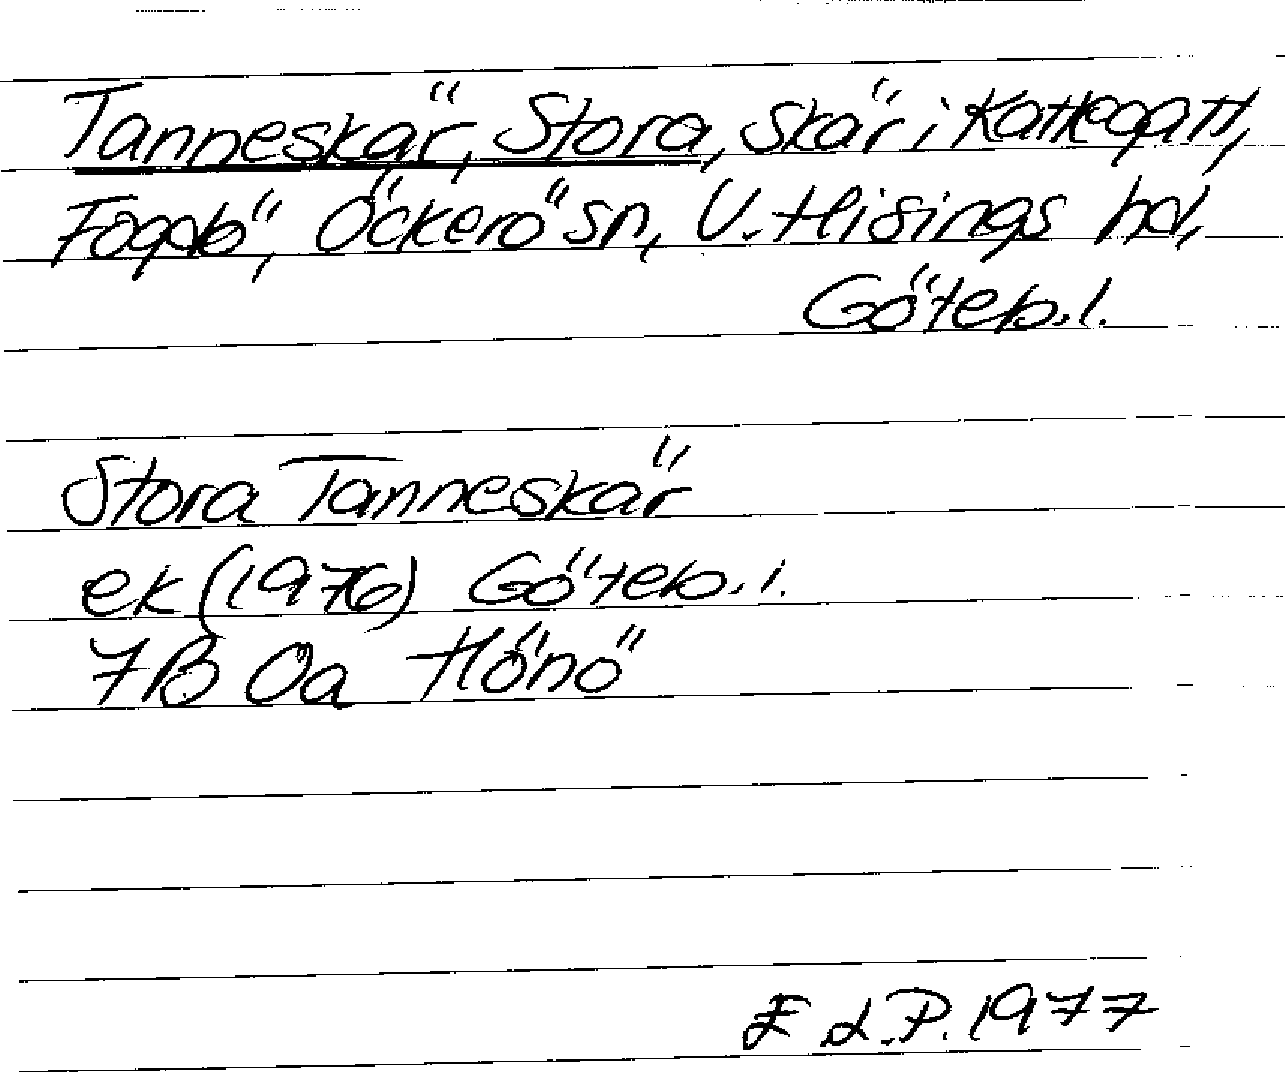 Tanneskär, Stora, skär i Kattegatt,
Fogdö, Öckerö sn, V. Hisings hd,
Göteb. l.
Stora Tanneskär
ek (1976) Göteb. l.
7B 0a Hönö
E L.P. 1977